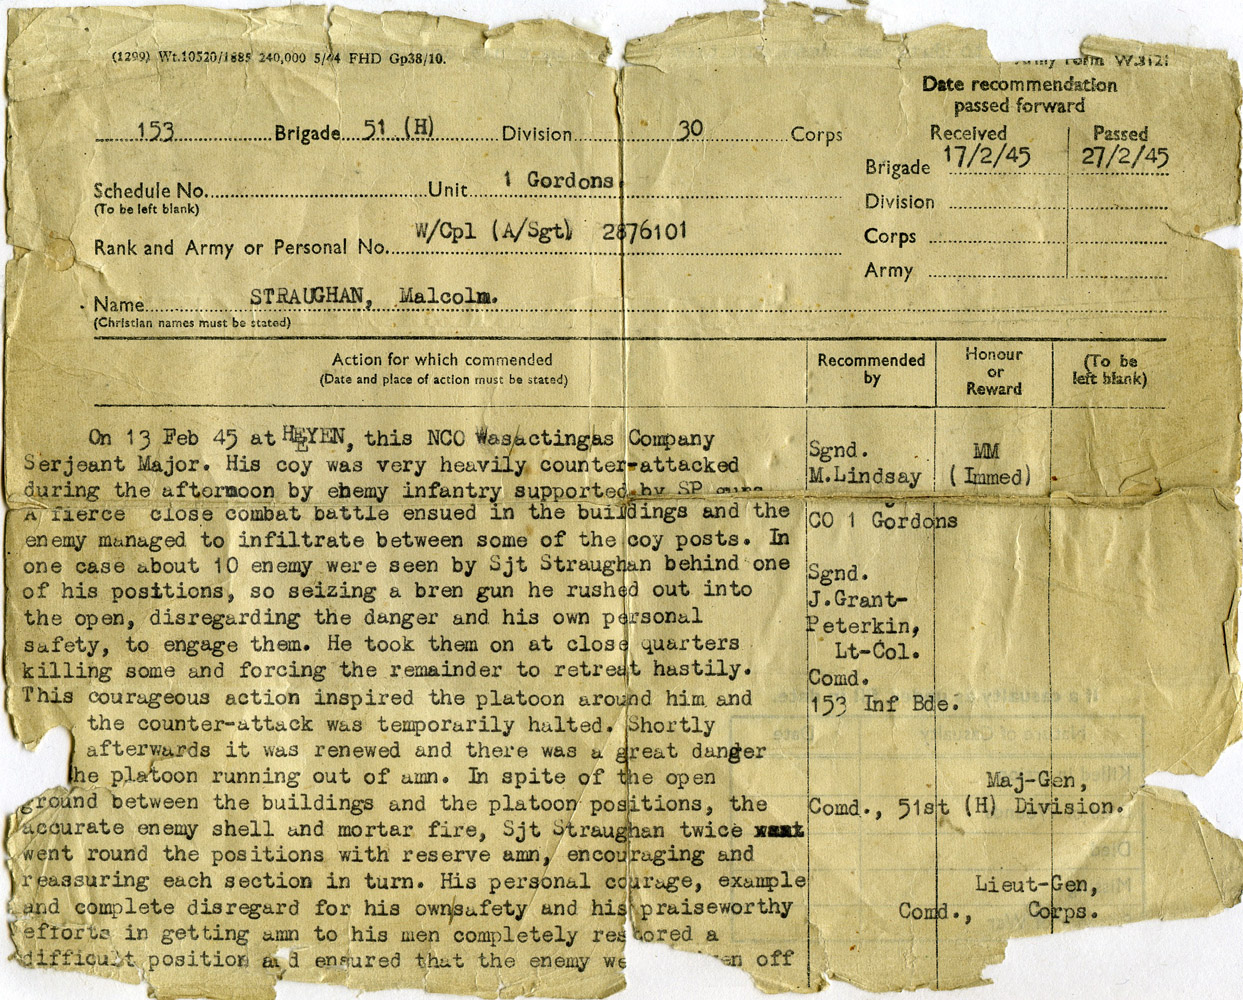 (1299) Wt.10520/1885 240,000 5/44 FHD Gp38/10.
Army Form W.3121
Date recommendation
passed forward
Received Passed
153 Brigade 51 (H) Division 30 Corps
Brigade 17/2/45 27/2/45
Schedule No. Unit 1 Gordons
(To be left blank)
Division
Rank and Army or Personal No. W/Cpl (A/Sgt) 2876101
Corps
Army
Name STRAUGHAN, Malcolm.
(Christian names must be stated)
Action for which commended
(Date and place of action must be stated)
Recommended
by
Honour
or
Reward
(To be
left blank)
On 13 Feb 45 at HEYEN, this NCO Wasactingas Company
Serjeant Major. His coy was very heavily counter-attacked
during the aftermoon by ehemy infantry supported by SP guns
A fierce close combat battle ensued in the buildings and the
enemy managed to infiltrate between some of the coy posts. In
one case about 10 enemy were seen by Sjt Straughan behind one
of his positions, so seizing a bren gun he rushed out into
the open, disregarding the danger and his own personal
safety, to engage them. He took them on at close quarters
killing some and forcing the remainder to retreat hastily.
This courageous action inspired the platoon around him and
the counter-attack was temporarily halted. Shortly
afterwards it was renewed and there was a great danger
he platoon running out of amn. In spite of the open
ground between the buildings and the platoon positions, the
accurate enemy shell and mortar fire, Sjt Straughan twice
went round the positions with reserve amn, encouraging and
reassuring each section in turn. His personal courage, example
and complete disregard for his ownsafety and his praiseworthy
efforts in getting amn to his men completely restored a
difficult position and ensured that the enemy we en off
Sgnd.
M.Lindsay
CO 1 Gordons
Sgnd.
J.Grant-
Peterkin,
Lt-Col.
Comd.
153 Inf Bde.
MM
(Immed)
Maj-Gen,
Comd., 51st (H) Division.
Lieut-Gen,
Comd., Corps.